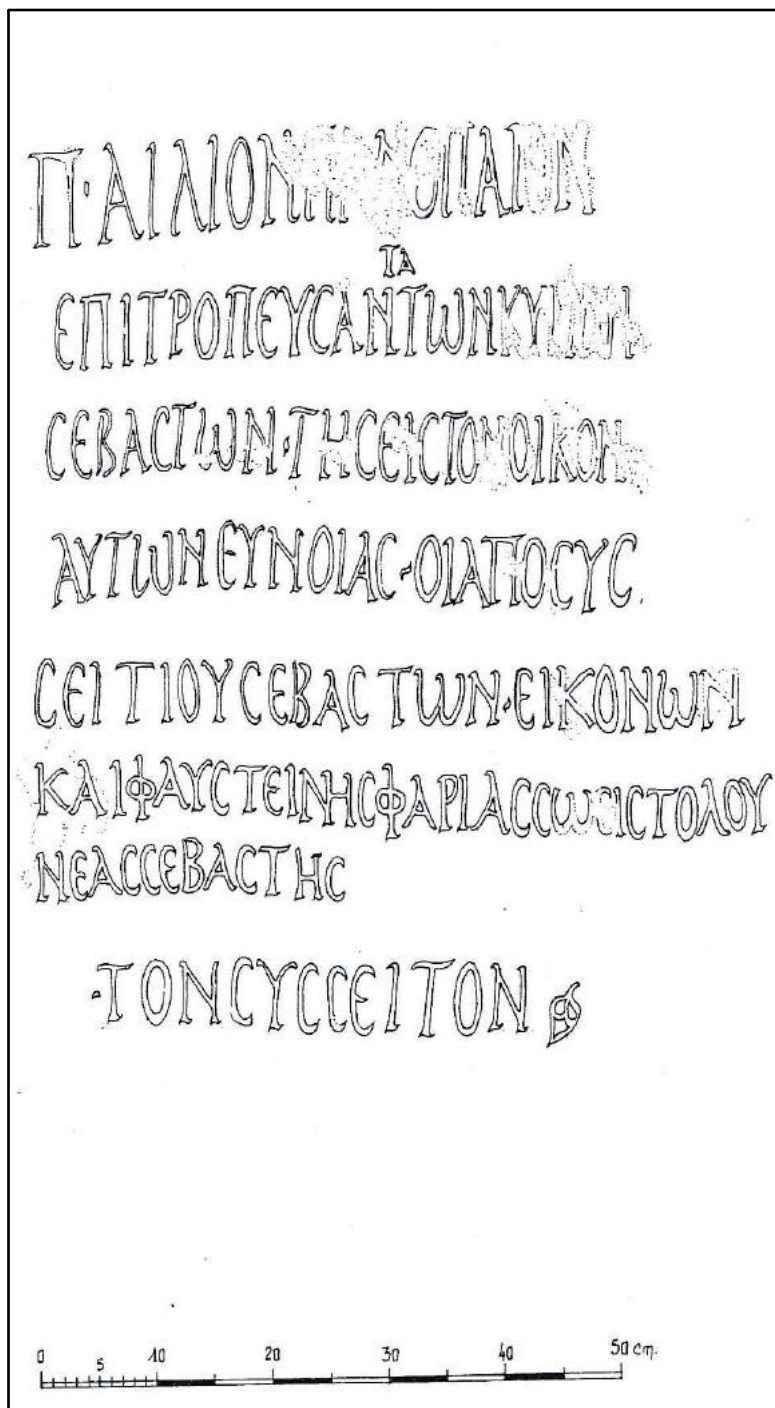 Π·ΑΙΛΙΟΝ
ΤΑ
ΕΠΙΤΡΟΠΕΥCΑΝΤΩΝΚΥΡΙΩΝ
CΕΒΑCΤΩΝ·ΤΗCΕΙCΤΟΝΟΙΚΟΝ
ΑΥΤΩΝΕΥΝΟΙΑC-ΟΙΑΠΟCΥC
CΕΙΤΙΟΥCΕΒΑCΤΩΝ·ΕΙΚΟΝΩΝ
ΚΑΙΦΑΥCΤΕΙΝΗCΦΑΡΙΑCCΩCΙCΤΟΛΟΥ
ΝΕΑCCΕΒΑCΤΗC
·ΤΟΝCΥCCΕΙΤΟΝ
0 5 10 20 30 40 50 cm.